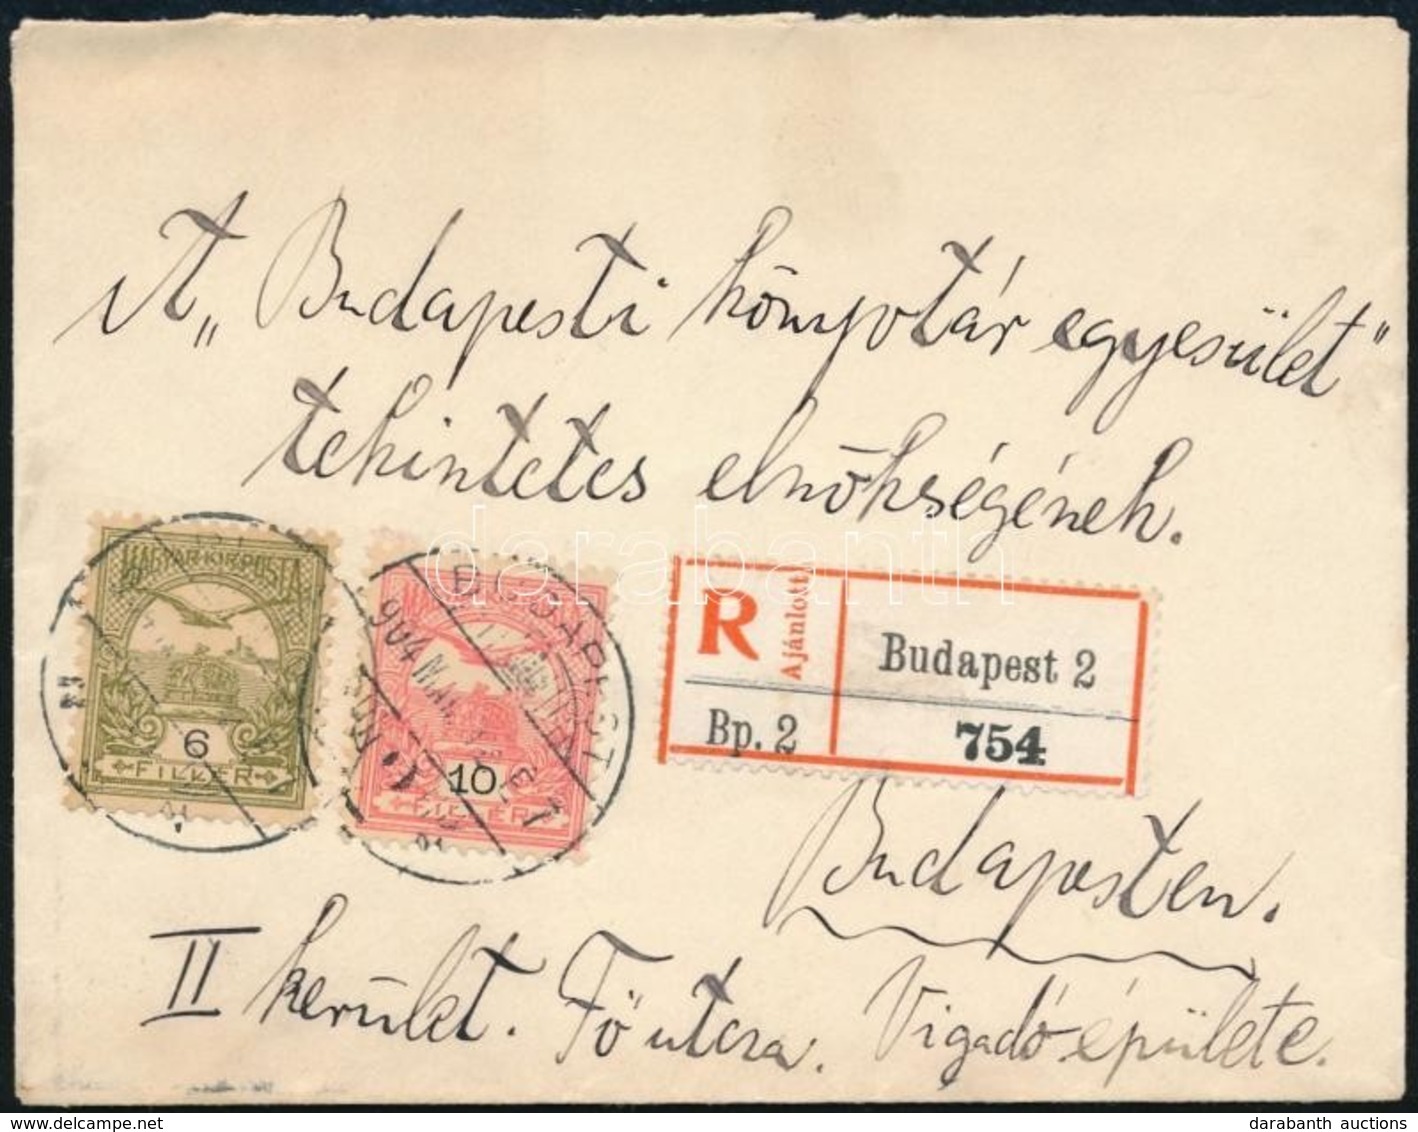 A „Budapesti könyvtár egyesület"
tekintetes elnökségének.
MAGYAR KIR. POSTA
6
FILLÉR
10
FILLÉR
BUDAPEST
904 MÁR
R
Ajánlott
Budapest 2
Bp. 2
754
Budapesten.
II kerület. Fő utcza. Vigadó épülete.
darabanth
www.delcampe.net
darabanth auctions